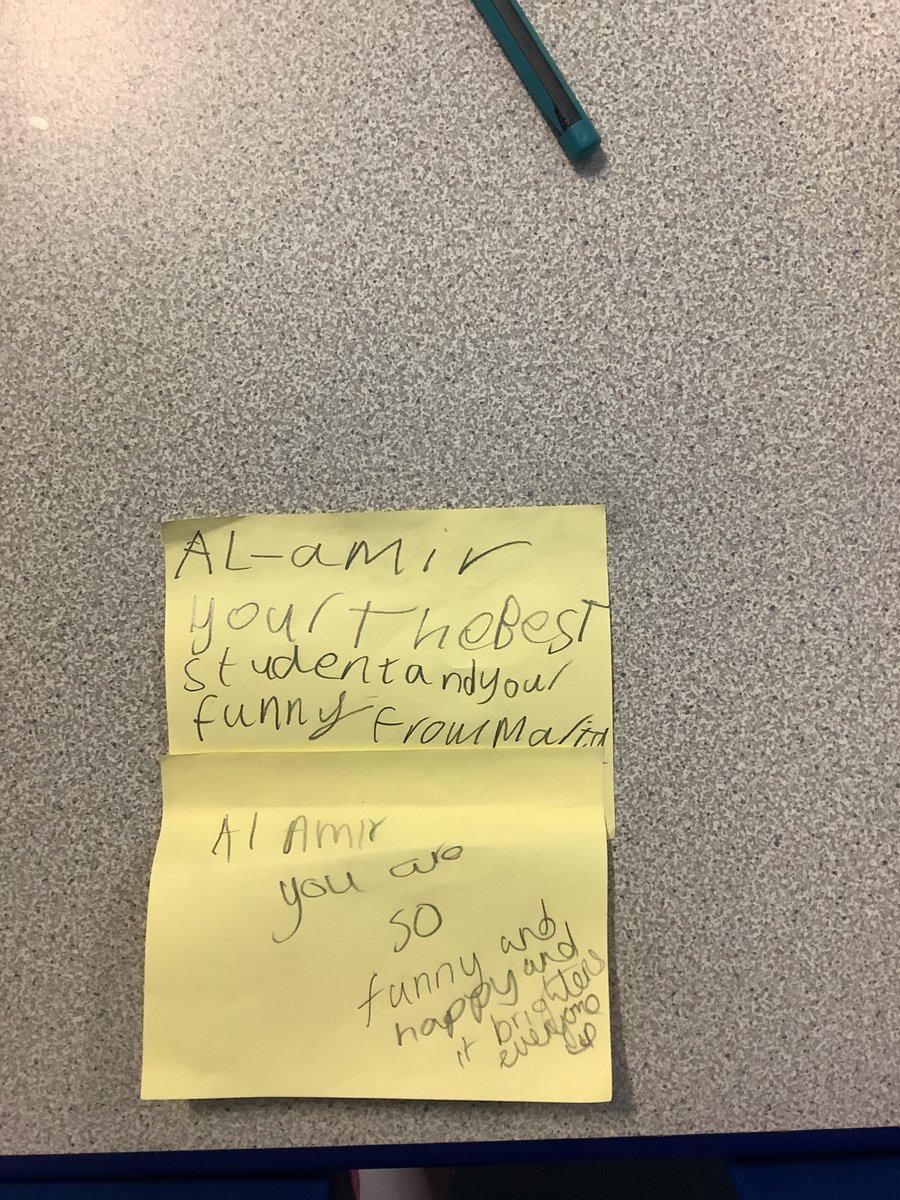 AL-amir
your the Best
student and your
funny from
Al Amir
you are
so
funny and
happy and
it brightens
everyone
up